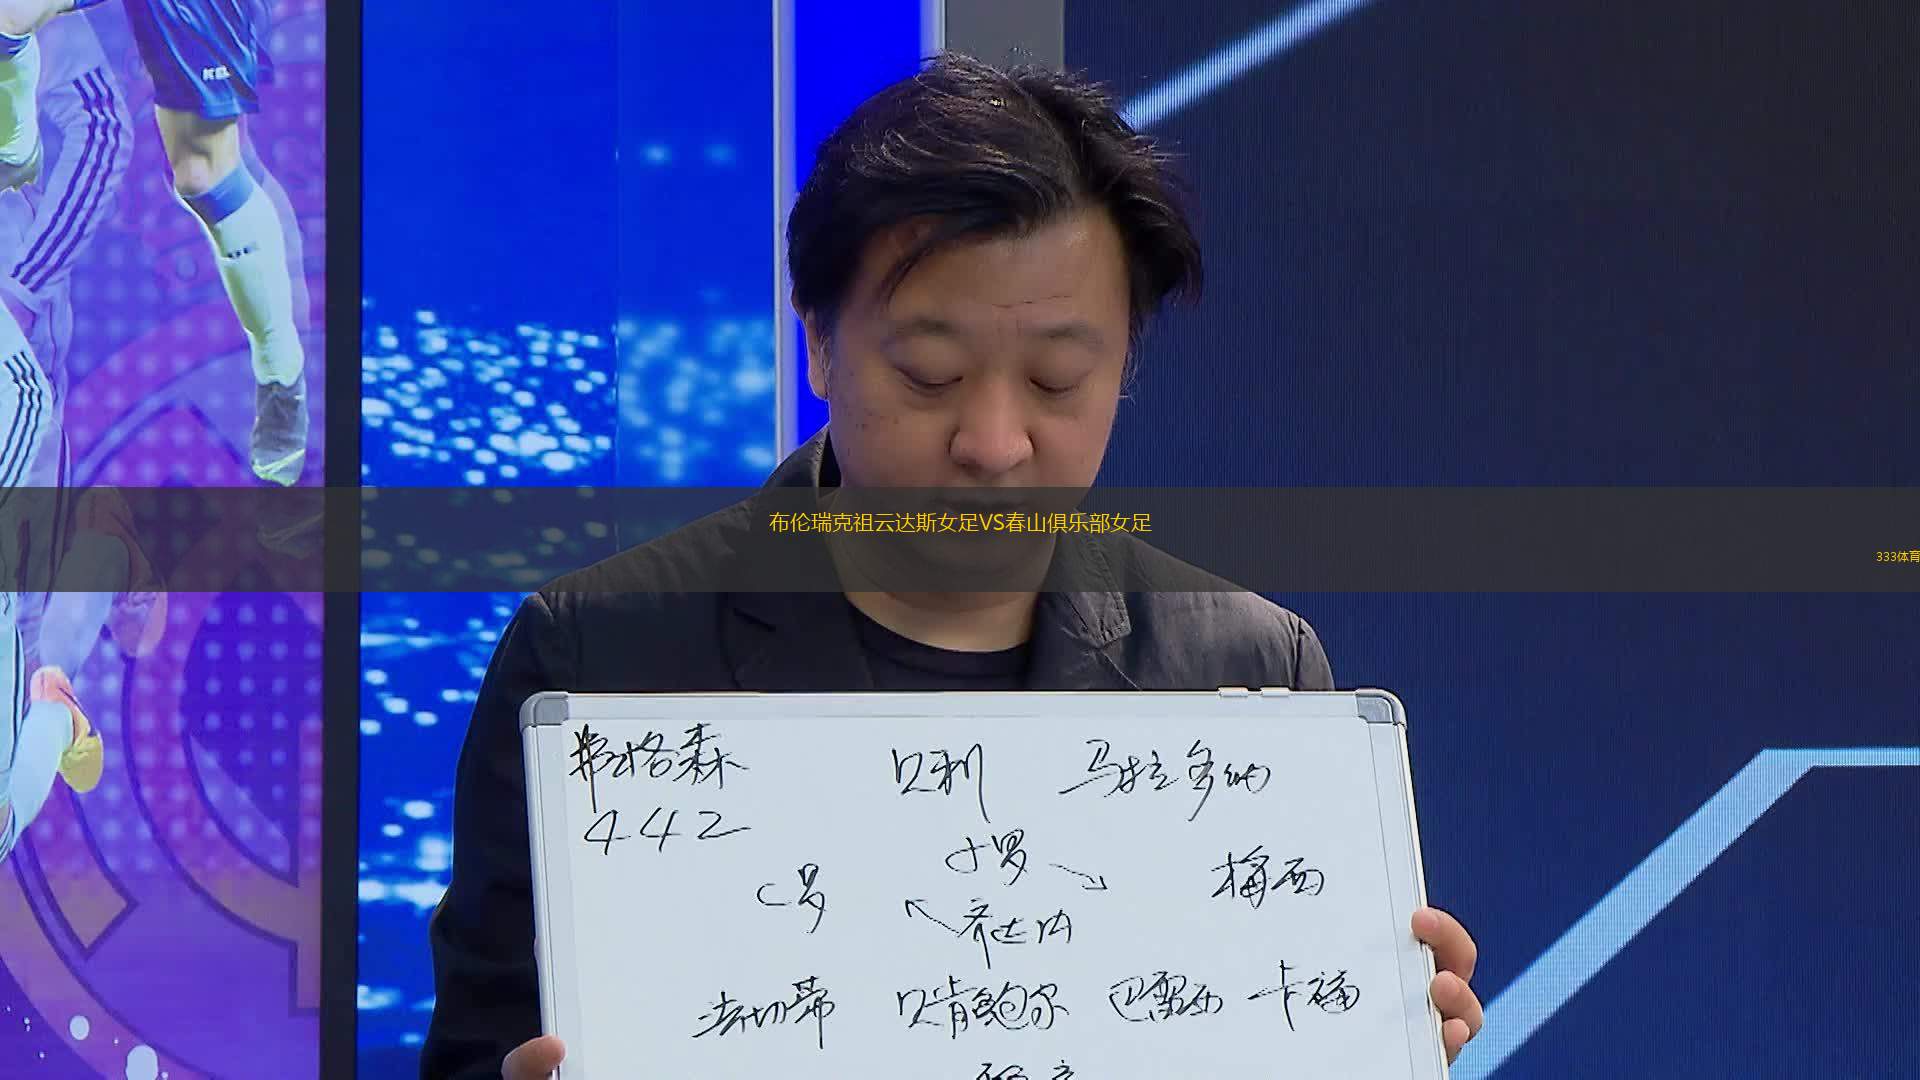 布伦瑞克祖云达斯女足VS春山俱乐部女足
333体育
弗格森 贝利 马拉多纳
442
小罗
C罗 梅西
齐达内
法切蒂 贝肯鲍尔 巴雷西 卡福